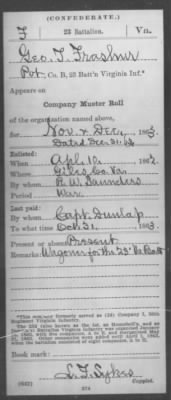 (CONFEDERATE.)
F | 23 Battalion. | Va.
Geo. T. Trashur
Pvt., Co. B, 23 Batt'n Virginia Inf.*
Appears on
Company Muster Roll
of the organization named above,
for Nov. & Dec., 1863.
Dated Dec. 31. 63
Enlisted:
When Apl. 10, 1862.
Where Giles Co. Va.
By whom R. W. Saunders
Period War
Last paid:
By whom Capt. Dunlap
To what time Oct. 31, 1863.
Present or absent Present
Remarks: Wagoner for the 23" Va Batt
Book mark:
(642)
L. T. Sykes
Copyist.